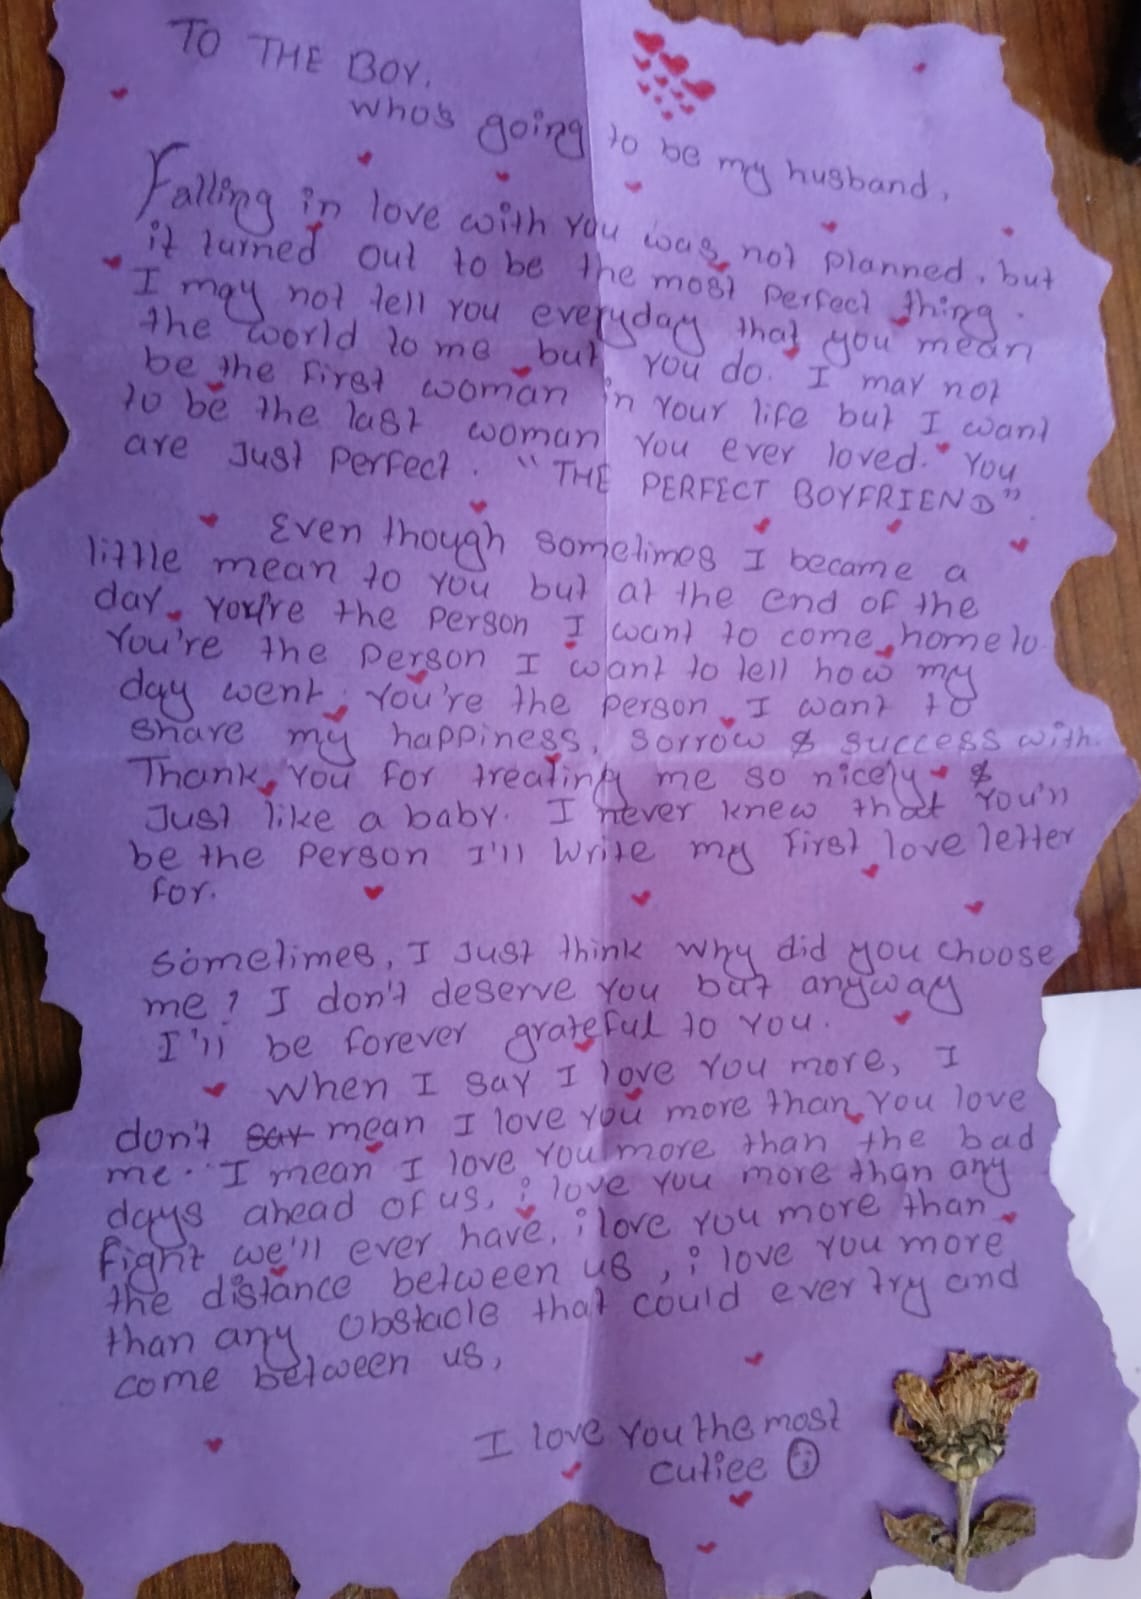 TO THE BOY,
who's going to be my husband,
Falling in love with you was not planned, but
it turned out to be the most perfect thing.
I may not tell you everyday that you mean
the world to me but you do. I may not
be the first woman in your life but I want
to be the last woman you ever loved. You
are just perfect. "THE PERFECT BOYFRIEND"
Even though sometimes I became a
little mean to you but at the end of the
day, you're the person I want to come home to
You're the person I want to tell how my
day went, You're the person I want to
share my happiness, sorrow & success with.
Thank you for treating me so nicely &
Just like a baby. I never knew that you'll
be the person I'll write my first love letter
for.
Sometimes, I just think why did you choose
me? I don't deserve you but anyway
I'll be forever grateful to you.
When I say I love you more, I
don't say mean I love you more than you love
me.. I mean I love you more than the bad
days ahead of us, i love you more than any
fight we'll ever have, i love you more than
the distance between us, i love you more
than any obstacle that could ever try and
come between us,
I love you the most
cutiee